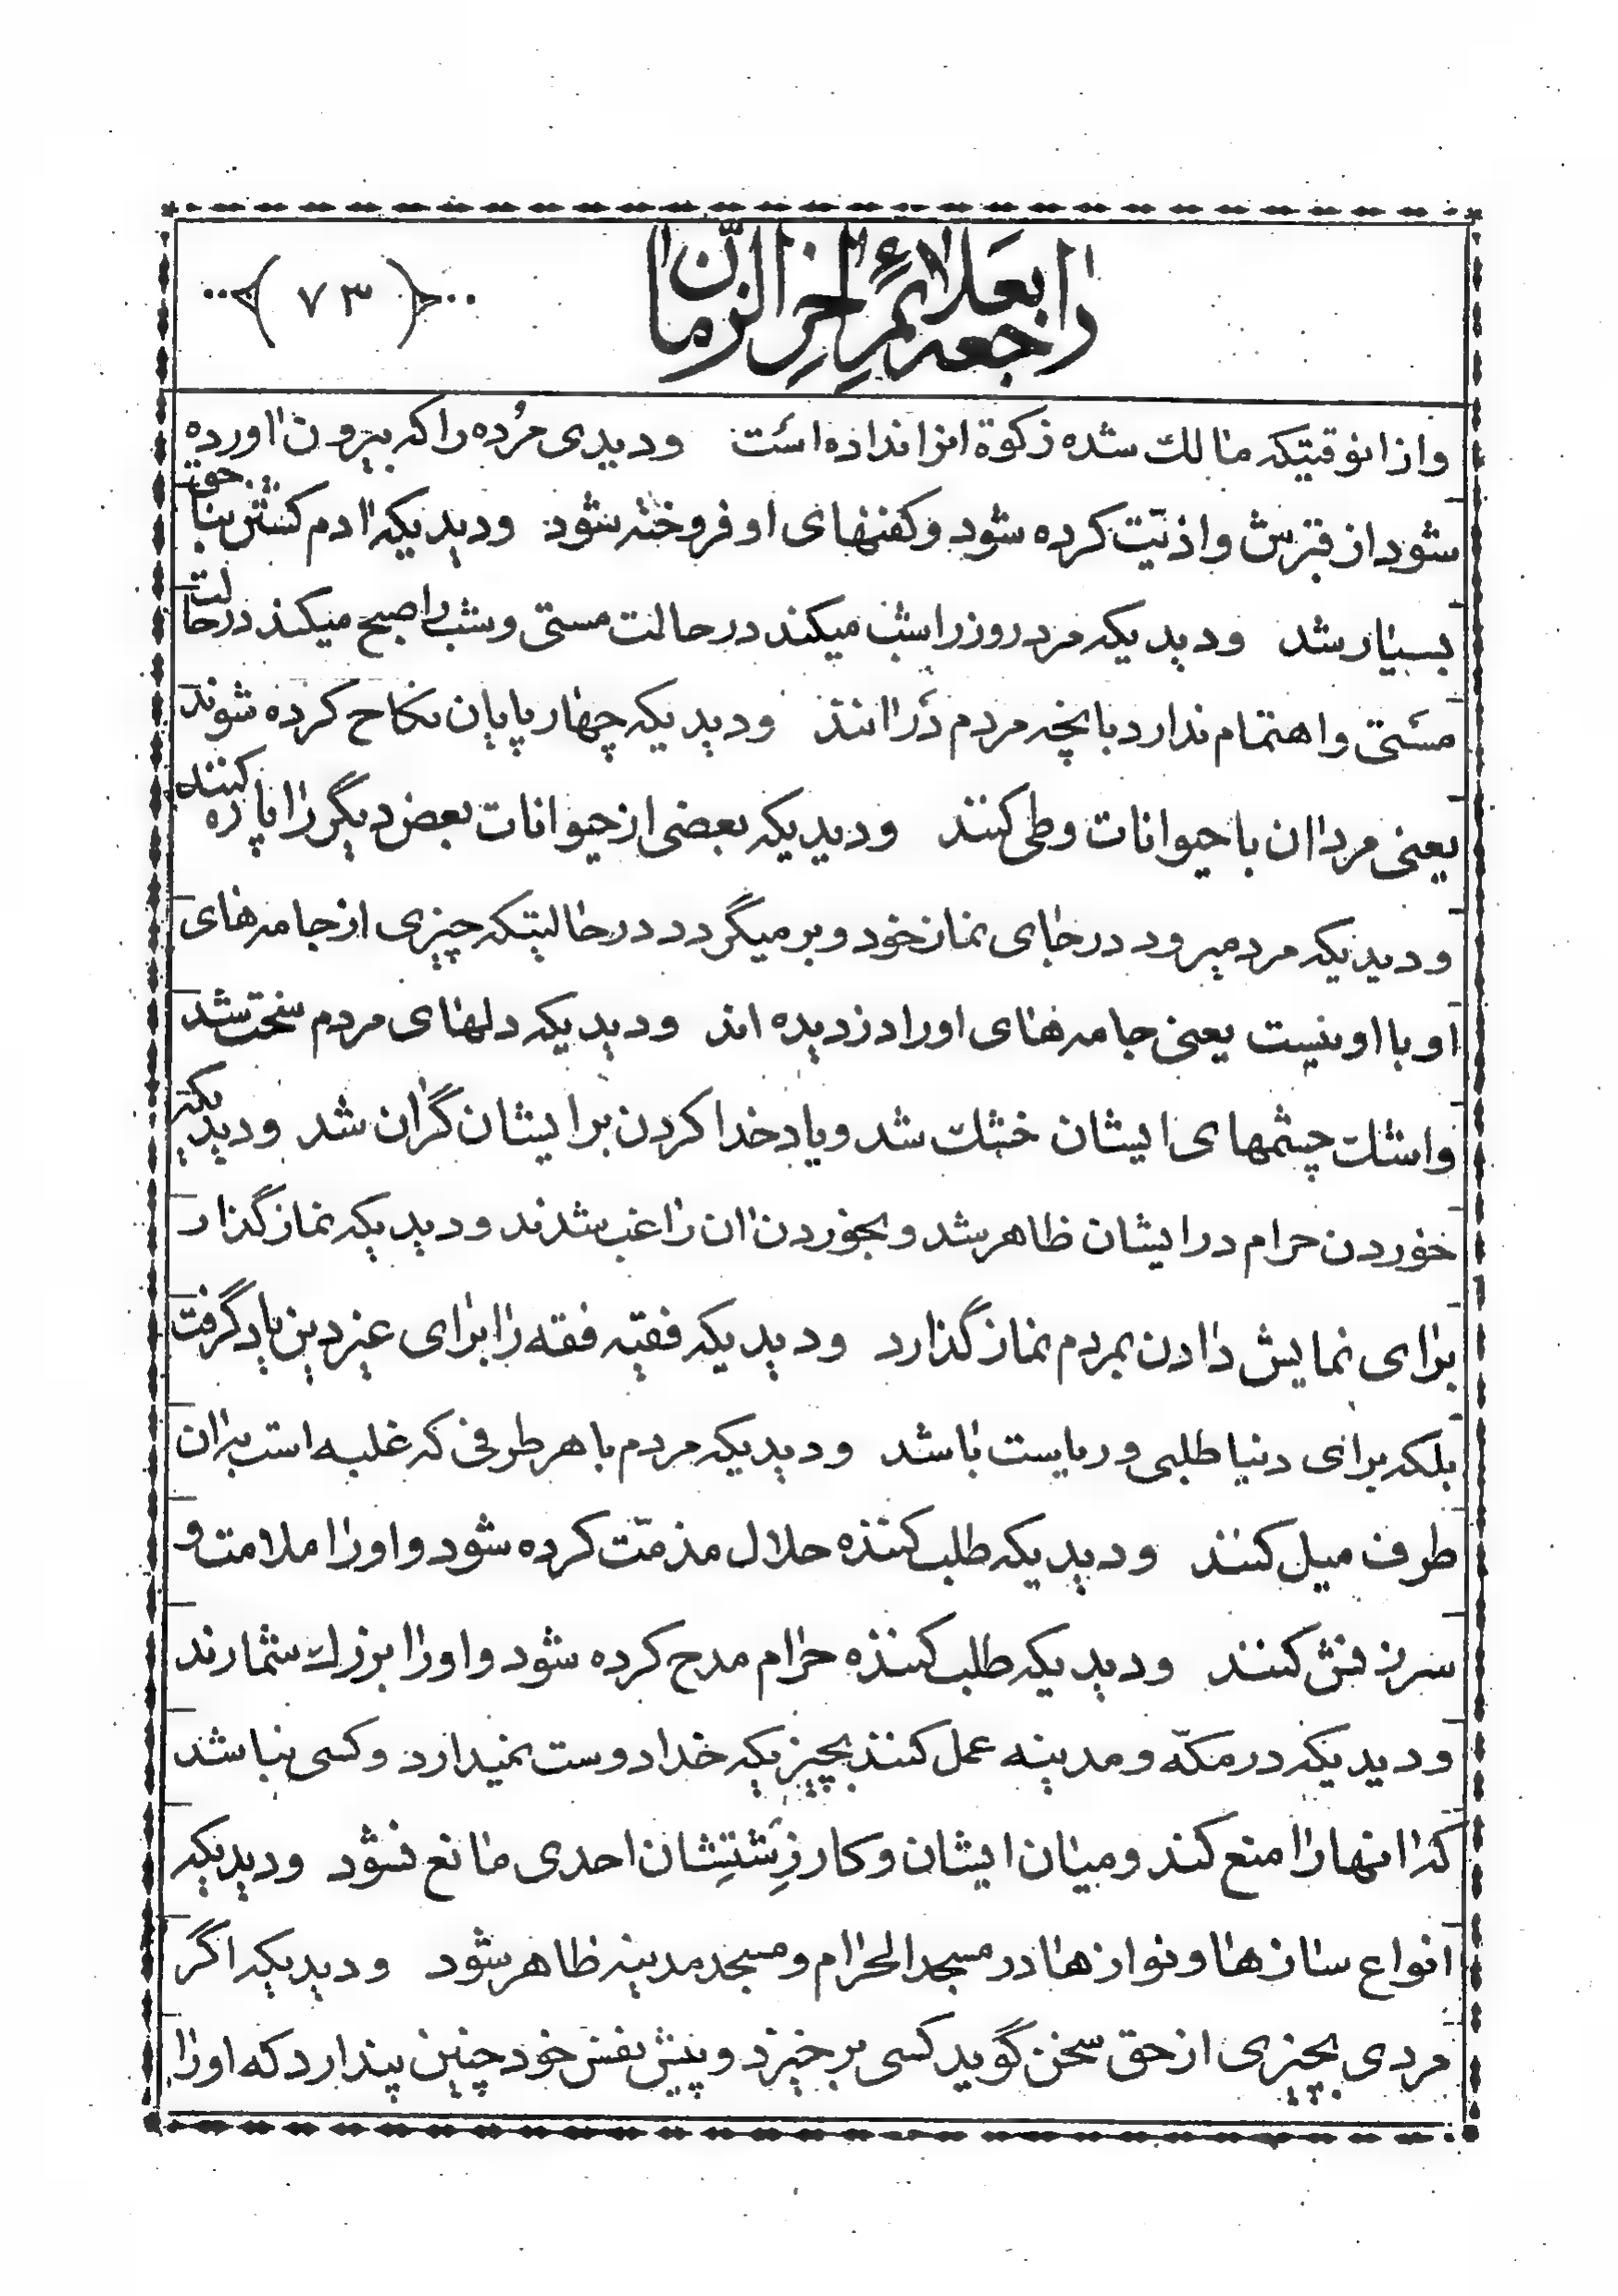 راجعه بعلائم اخر الزّمان
(۷۳)
و از انوقتیکه مالک شده زکوة انرا نداده است و دیدی مُرده را که بیرون اورده
شود از قبرش و اذیّت کرده شود و کفنهای او فروخته شود و دیدیکه ادم کشتن بناحق
بسیار شد و دیدیکه مرد روز را شب میکند در حالت مستی و شب را صبح میکند در حالت
مستی و اهتمام ندارد بانچه مردم درانند و دیدیکه چهارپایان نکاح کرده شوند
یعنی مردان با حیوانات وطی کنند و دیدیکه بعضی از حیوانات بعض دیگر را پاره کنند
و دیدیکه مرد میرود در جای نماز خود و بر میگردد در حالیتکه چیزی از جامه های
او با او نیست یعنی جامه های او را دزدیده اند و دیدیکه دلهای مردم سخت شد
و اشک چشمهای ایشان خشک شد و یاد خدا کردن برایشان گران شد و دیدیکه
خوردن حرام در ایشان ظاهر شد و بخوردن ان راغب شدند و دیدیکه نماز گذار
برای نمایش دادن بمردم نماز گذارد و دیدیکه فقیه فقه را برای غیر دین یاد گرفت
بلکه برای دنیا طلبی و ریاست باشد و دیدیکه مردم با هر طرفی که غلبه است بران
طرف میل کنند و دیدیکه طلب کننده حلال مذمّت کرده شود و او را ملامت و
سرزنش کنند و دیدیکه طلب کننده حرام مدح کرده شود و او را بزرک شمارند
و دیدیکه در مکّه و مدینه عمل کنند بچیزیکه خدا دوست نمیدارد و کسی نباشد
که انها را منع کند و میان ایشان و کار زِشتِشان احدی مانع نشود و دیدیکه
انواع سازها و نوازها در مسجد الحرام و مسجد مدینه ظاهر شود و دیدیکه اگر
مردی بچیزی از حق سخن گوید کسی بر خیزد و پیش نفس خود چنین پندارد که او را